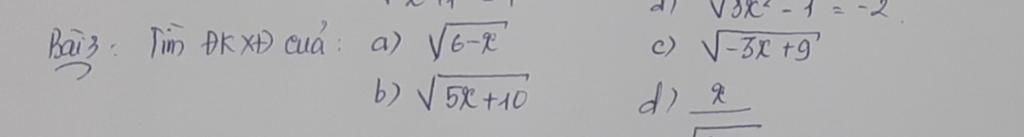 d) √3x² - 1 = -2.
Bài 3: Tìm ĐKXĐ cuả: a) √6-x c) √-3x+9
b) √5x+10 d) x